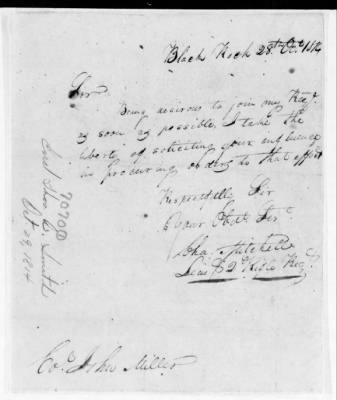 Black Rock 28th Octr 1814
Sir
Being desirous to join my Regt.
as soon as possible, I take the
liberty of soliciting your influence
in procuring orders to that effect
Respectfully Sir
Your Obdt. Sert.
Chas. Mitchell
2d Rifle Regt.
Col. John Miller
7070D
Smith
Oct 29, 1814